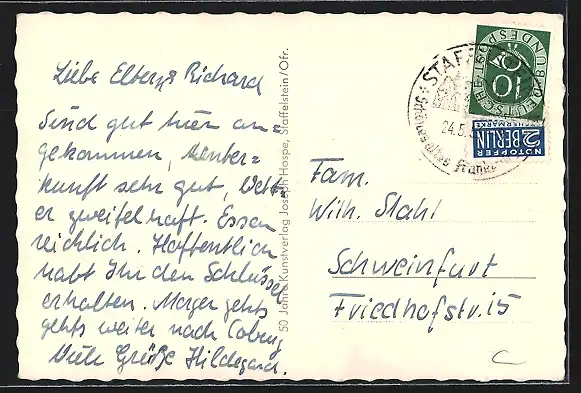 Liebe Eltern & Richard
Sind gut hier an=
gekommen, Unter=
kunft sehr gut, Wett=
er zweifelhaft. Essen
reichlich. Hoffentlich
habt Ihr den Schlüssel
erhalten. Morgen gehts
gehts weiter nach Coburg
Viele Grüße Hildegard.
50 Jahre Kunstverlag Joseph Hospe, Staffelstein/Ofr.
Fam.
Wilh. Stahl
Schweinfurt
Friedhofstr. 15
STAFF
24.5.
DEUTSCHE BUNDESPOST
10
NOTOPFER
2 BERLIN
STEUERMARKE